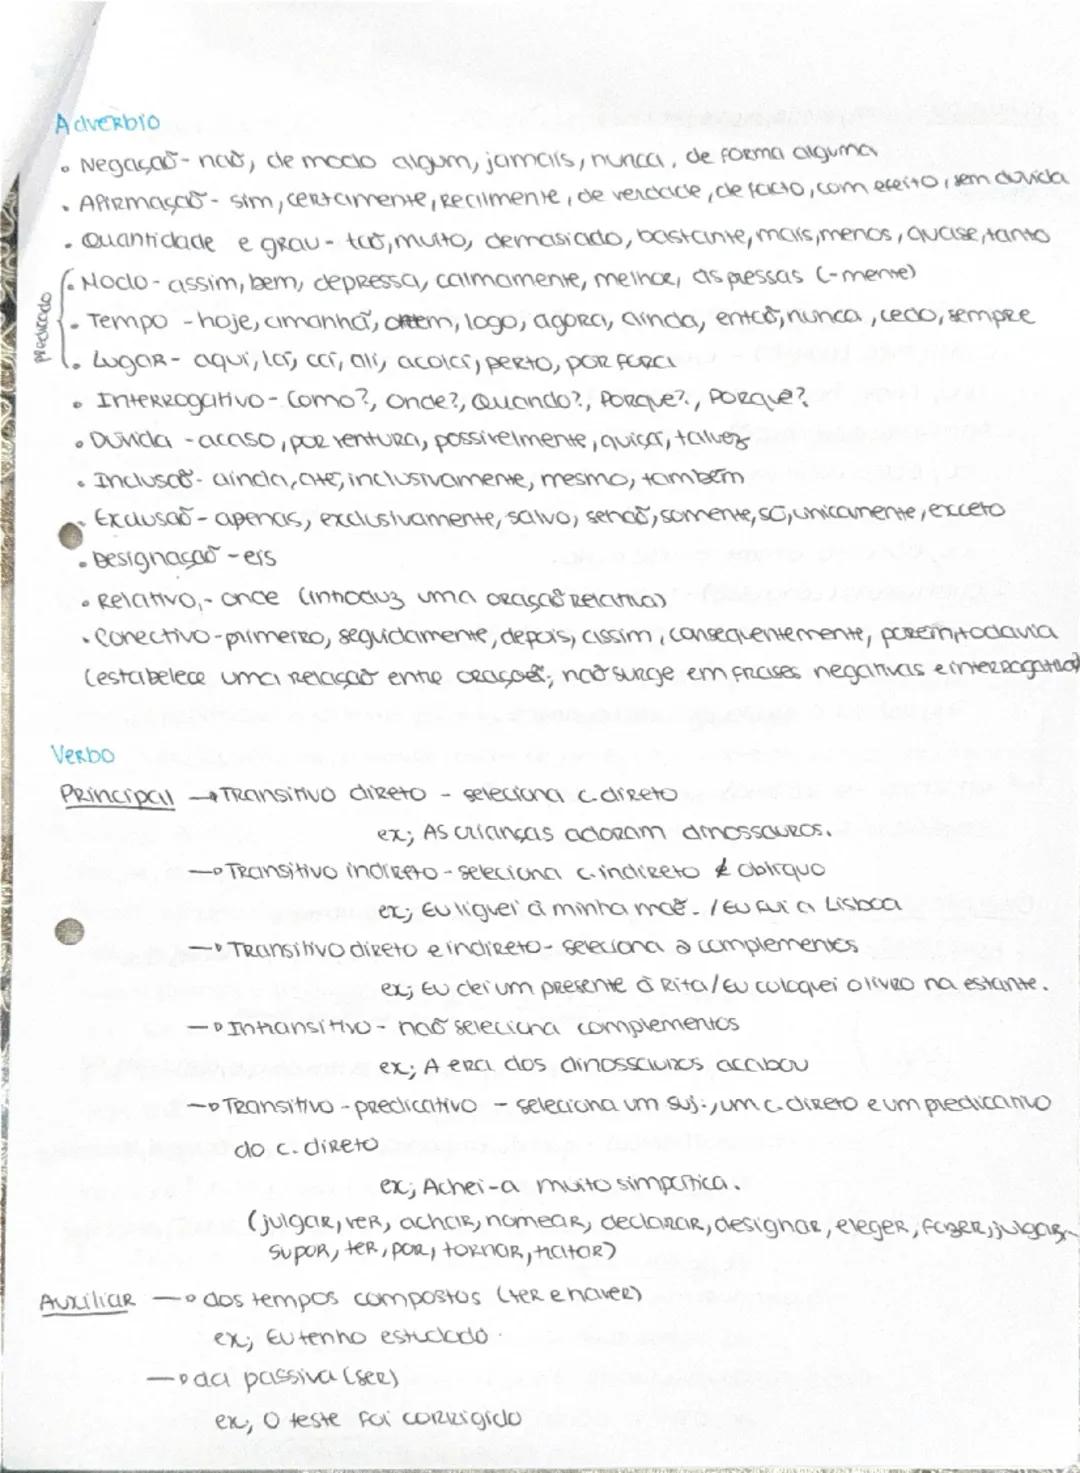 Advérbio
• Negação - não, de modo algum, jamais, nunca, de forma alguma
• Afirmação - sim, certamente, realmente, de verdade, de facto, com efeito, sem dúvida
• Quantidade e grau - tão, muito, demasiado, bastante, mais, menos, quase, tanto
predicado
• Modo - assim, bem, depressa, calmamente, melhor, às pressas (-mente)
• Tempo - hoje, amanhã, ontem, logo, agora, ainda, então, nunca, cedo, sempre
• Lugar - aqui, lá, cá, ali, acolá, perto, por fora
• Interrogativo - Como?, Onde?, Quando?, Porque?, Porquê?
• Dúvida - acaso, por ventura, possivelmente, quiçá, talvez
• Inclusão - ainda, até, inclusivamente, mesmo, também
• Exclusão - apenas, exclusivamente, salvo, senão, somente, só, unicamente, exceto
• Designação - eis
• Relativo - onde (introduz uma oração relativa)
• Conectivo - primeiro, seguidamente, depois, assim, consequentemente, porém, todavia
(estabelece uma relação entre orações; não surge em frases negativas e interrogativas)
Verbo
Principal → Transitivo direto - seleciona c. direto
ex; As crianças adoram dinossauros.
→ Transitivo indireto - seleciona c. indireto e oblíquo
ex; Eu liguei à minha mãe. / Eu fui a Lisboa
→ Transitivo direto e indireto - seleciona 2 complementos
ex; Eu dei um presente à Rita / Eu coloquei o livro na estante.
→ Intransitivo - não seleciona complementos
ex; A era dos dinossauros acabou
→ Transitivo - predicativo - seleciona um suj., um c. direto e um predicativo
do c. direto
ex; Achei-a muito simpática.
(julgar, ver, achar, nomear, declarar, designar, eleger, fazer, julgar,
supor, ter, por, tornar, tratar)
Auxiliar → dos tempos compostos (ter e haver)
ex; Eu tenho estudado.
→ da passiva (ser)
ex; O teste foi corrigido